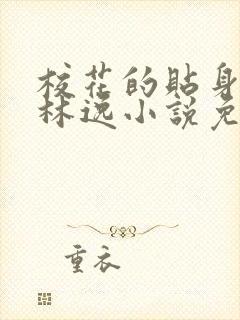 校花的貼身
林逸小說免
重衣